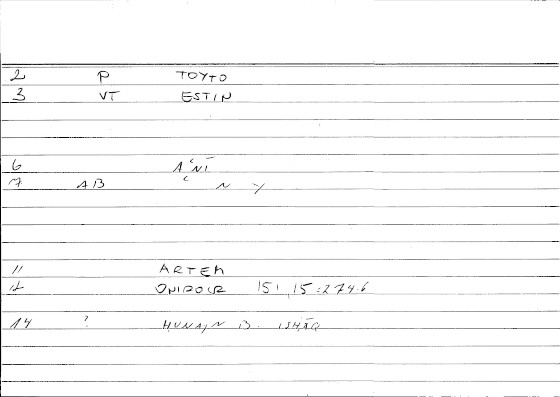 2 P TOYTO
3 VT ESTIN
6
7 AB N Y
11 ARTEM
12 ONIROCR 151, 15:274.6
14 ? HUNAYN B. ISHĀQ